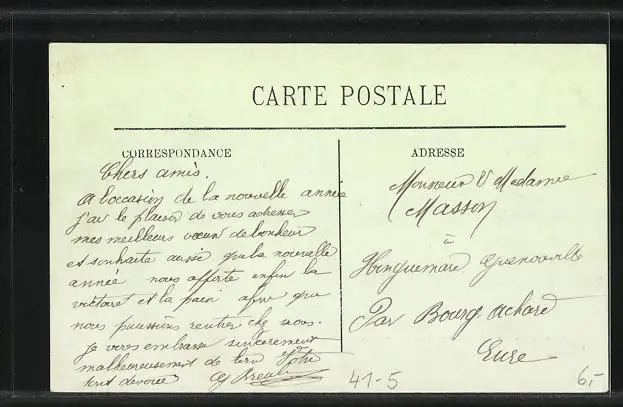 CARTE POSTALE
CORRESPONDANCE
Chers amis.
A l'occasion de la nouvelle année
j'ai le plaisir de vous adresser
mes meilleurs vœux de bonheur
et souhaite aussi que la nouvelle
année nous apporte enfin la
victoire et la paix afin que
nous puissions rentrer chez nous.
Je vous embrasse sincèrement
malheureusement de loin Votre
tout dévoué
ADRESSE
Monsieur & Madame
Masson
à
Honguemare Guenouville
Par Bourg-Achard
Eure
41-5
6,-